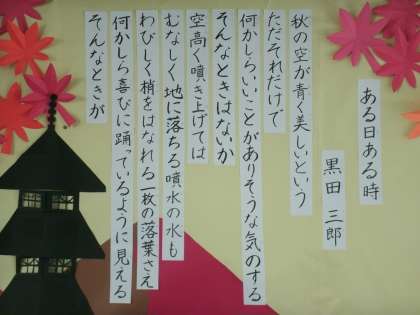 ある日ある時
黒田三郎
秋の空が青く美しいという
ただそれだけで
何かしらいいことがありそうな気のする
そんなときはないか
空高く噴き上げては
むなしく地に落ちる噴水の水も
わびしく梢をはなれる一枚の落葉さえ
何かしら喜びに踊っているように見える
そんなときが